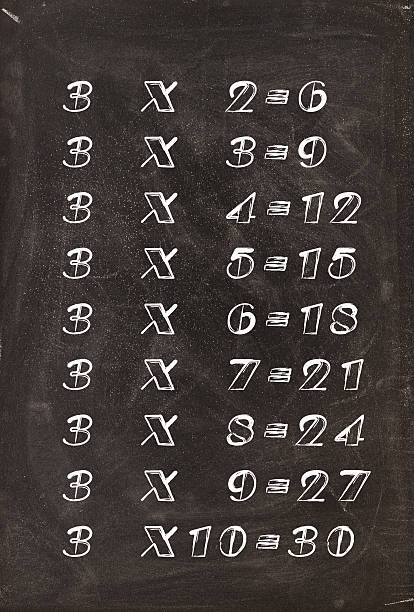 3 X 2=6
3 X 3=9
3 X 4=12
3 X 5=15
3 X 6=18
3 X 7=21
3 X 8=24
3 X 9=27
3 X10=30